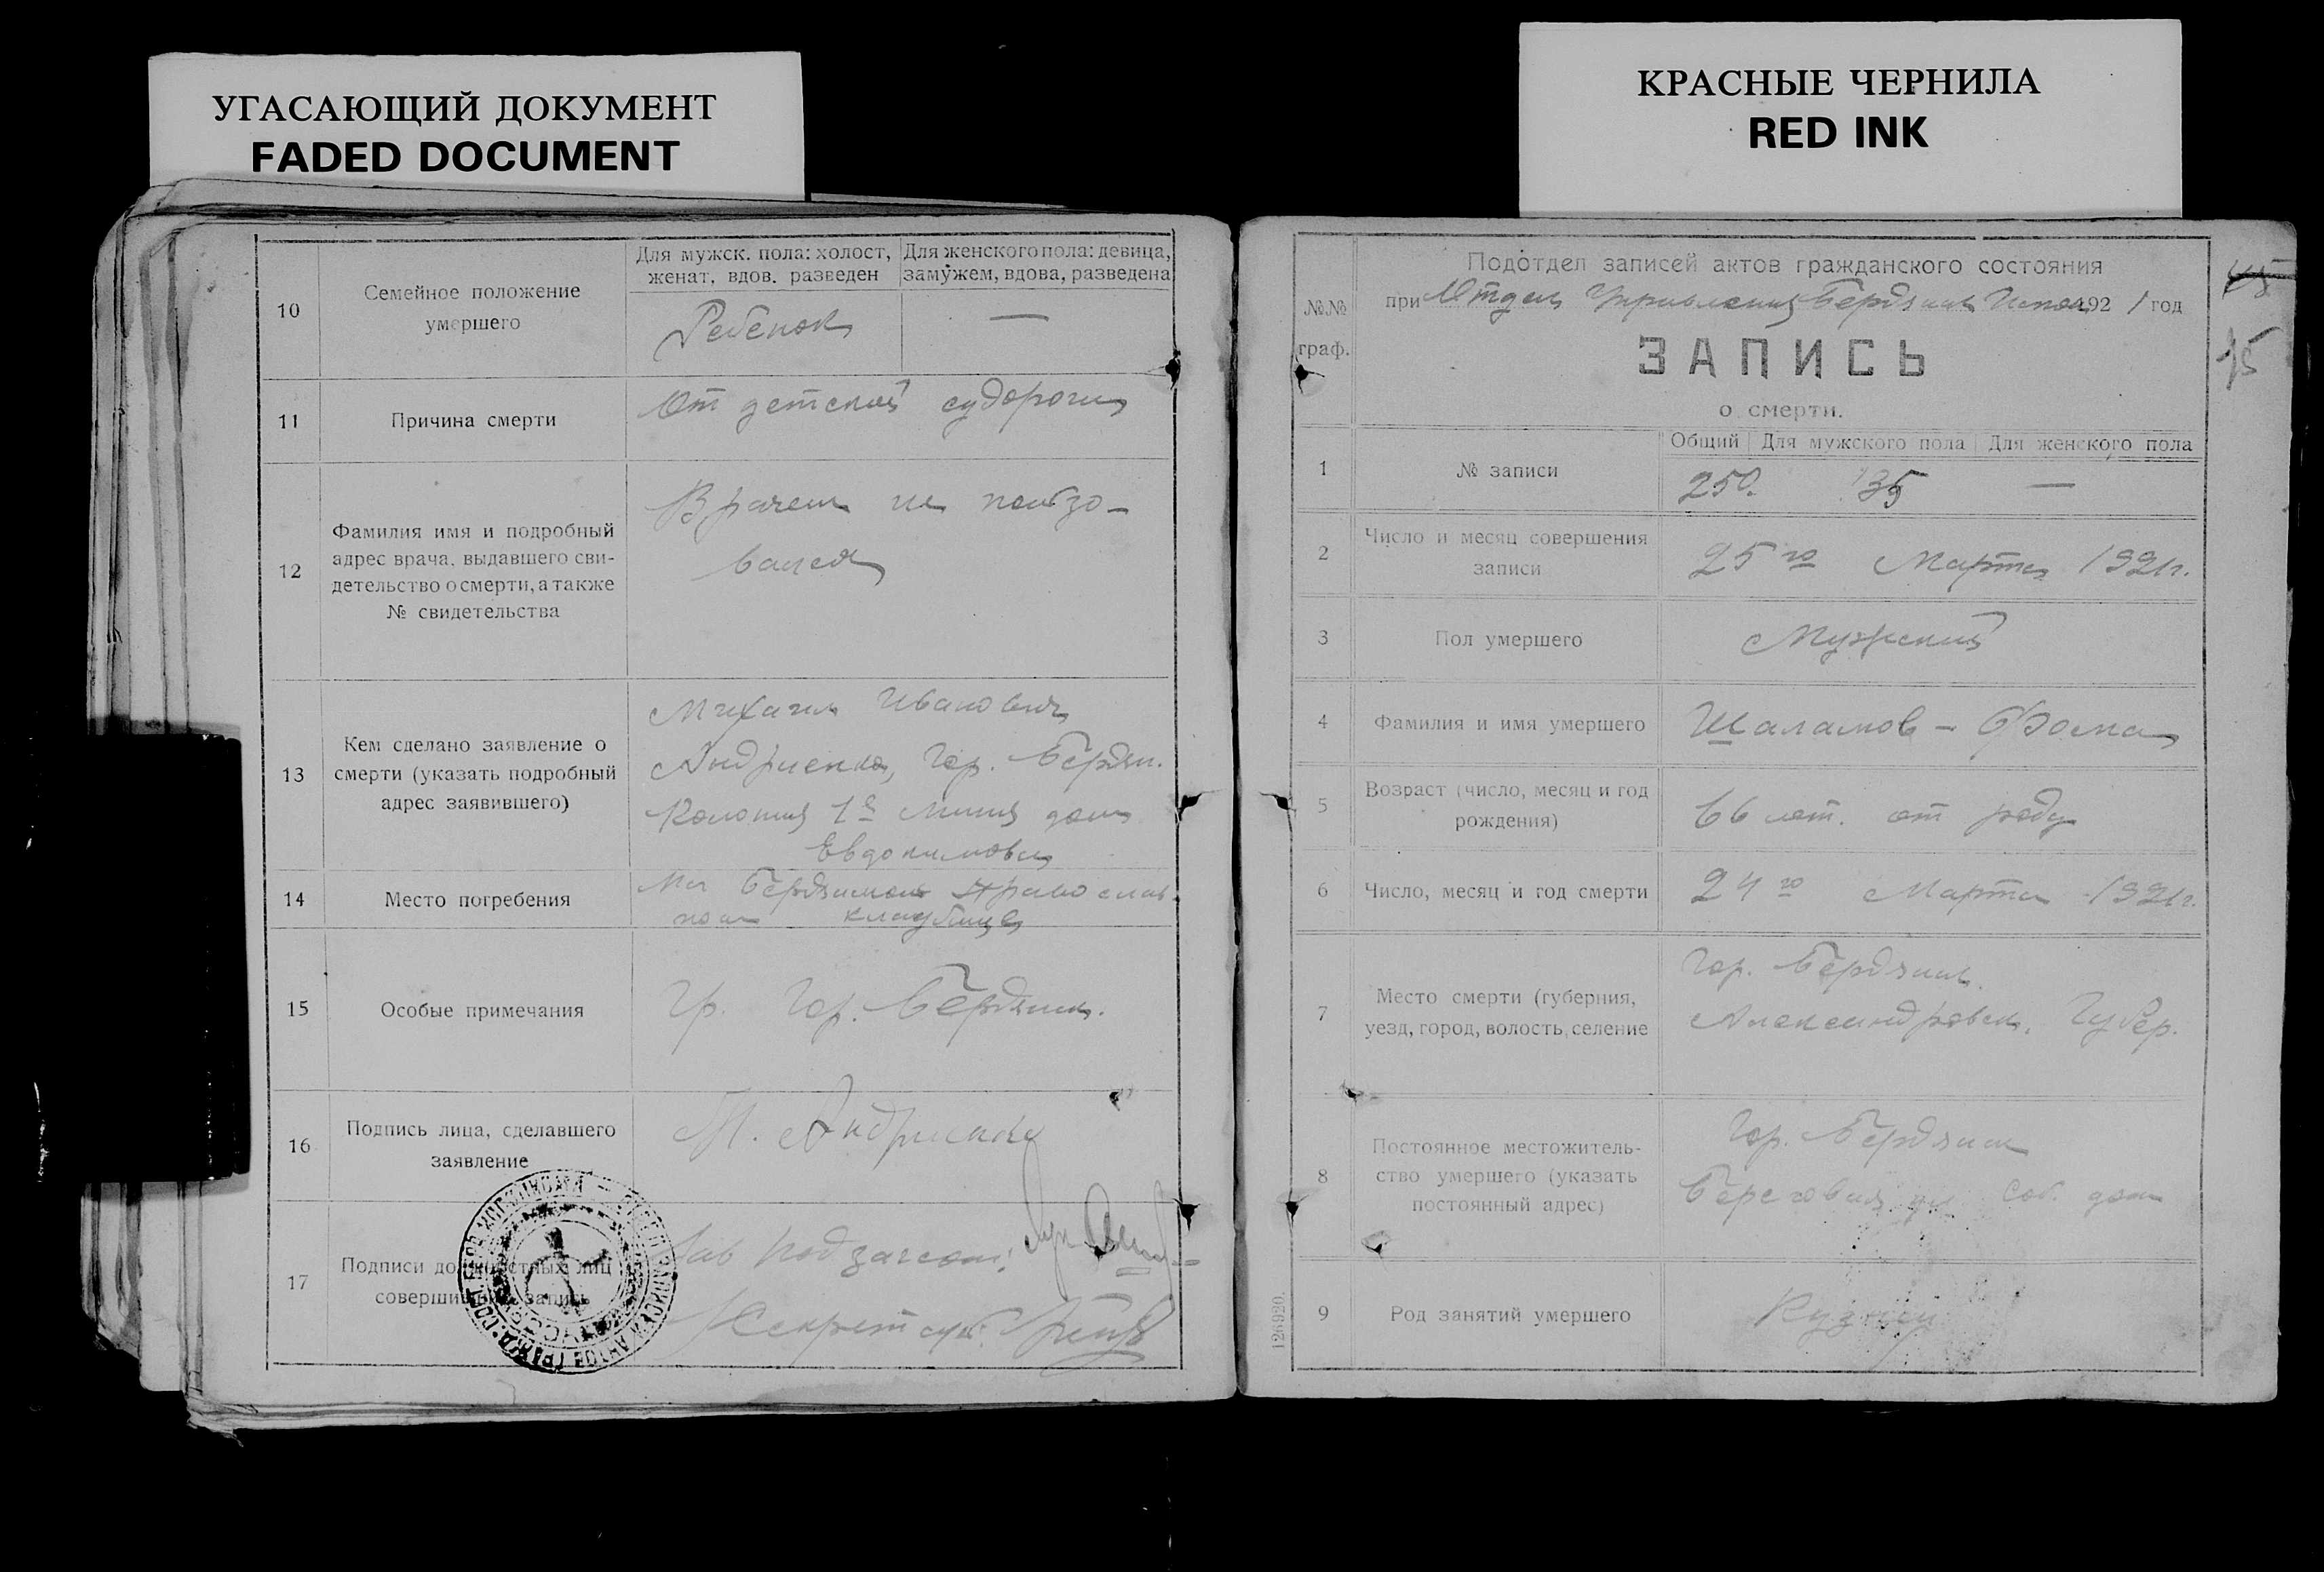 УГАСАЮЩИЙ ДОКУМЕНТ
FADED DOCUMENT
КРАСНЫЕ ЧЕРНИЛА
RED INK
10
Семейное положение
умершего
Для мужск. пола: холост,
женат, вдов. разведен
Для женского пола: девица,
замужем, вдова, разведена
Ребенок
—
11
Причина смерти
От детской судороги
12
Фамилия имя и подробный
адрес врача, выдавшего сви-
детельство о смерти, а также
№ свидетельства
Врачем не пользо-
вался
13
Кем сделано заявление о
смерти (указать подробный
адрес заявившего)
Михаил Иванович
Андриенко, Гор. Бердян.
Колония 1я Линия дом
Евдокимова
14
Место погребения
На Бердянском Православ-
ном кладбище
15
Особые примечания
Гр. Гор. Бердянск.
16
Подпись лица, сделавшего
заявление
М. Андриенко
17
Подписи должностных лиц
совершивших запись
Зав Подзагсом:
Секретарь:
Подотдел записей актов гражданского состояния
№№
граф.
при Отдел Управления Бердянск Испол 1921 год
45
75
ЗАПИСЬ
о смерти.
1
№ записи
Общий
Для мужского пола
Для женского пола
250.
135
—
2
Число и месяц совершения
записи
25 го Марта 1921г.
3
Пол умершего
Мужской
4
Фамилия и имя умершего
Шаламов - Фома
5
Возраст (число, месяц и год
рождения)
66 лет. от роду
6
Число, месяц и год смерти
24 го Марта 1921г.
7
Место смерти (губерния,
уезд, город, волость, селение
Гор. Бердянск.
Александровск. Губер.
8
Постоянное местожитель-
ство умершего (указать
постоянный адрес)
Гор. Бердянск
Береговая ул Соб. дом
9
Род занятий умершего
Кузнец
126920.